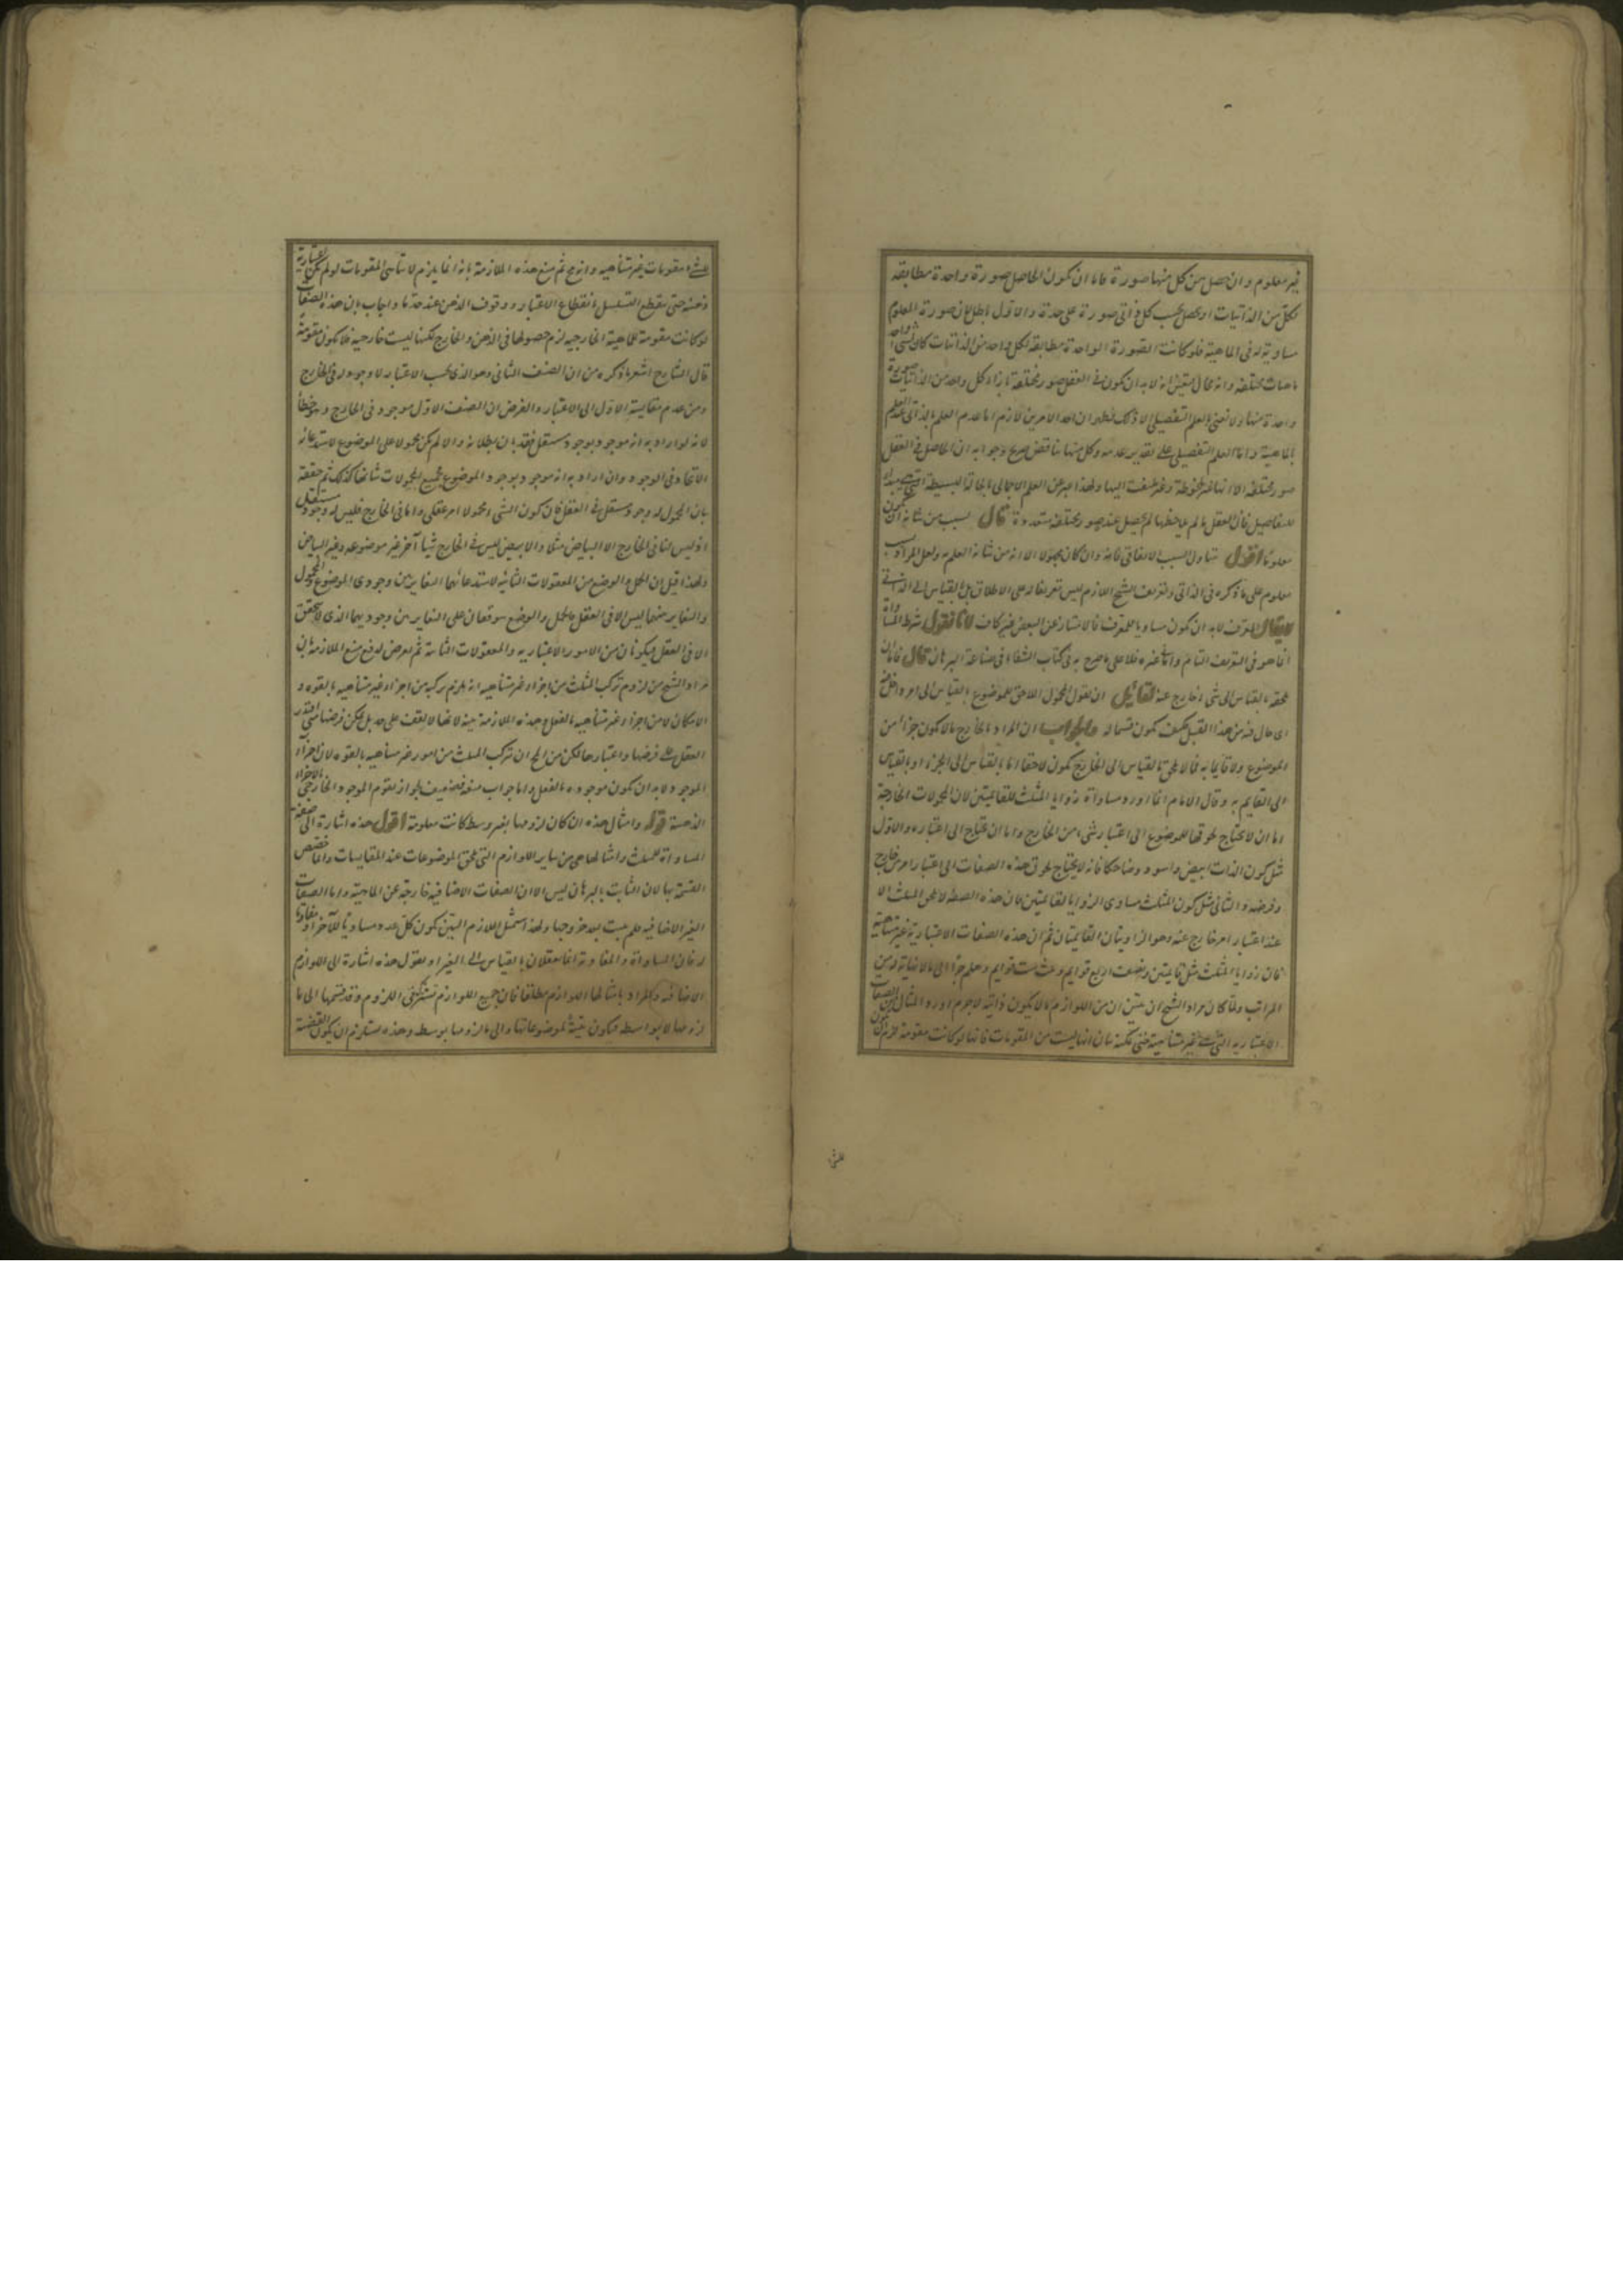 غير معلوم وان حصل من كل منها صورة فاما ان يكون الحاصل صورة واحدة مطابقة
لكل من الذاتيات او يحصل بحسب كل ذاتي صورة على حدة والاول باطل لان صورة المعلوم
مساوية له في الماهية فلو كانت الصورة الواحدة مطابقة لكل واحد من الذاتيات كان لشيء واحد
ماهيات مختلفة وانه محال فتعين انه لا بد ان يكون في العقل صور مختلفة بازاء كل واحد من الذاتيات صورة
واحدة منها ولا نعني بالعلم التفصيلي الا ذلك فظهر ان احد الامرين لازم اما عدم العلم بالذاتي عند العلم
بالماهية واما العلم التفصيلي على تقدير عدمه وكل منهما تناقض صريح وجوابه ان الحاصل في العقل
صور مختلفة الا انها غير ملحوظة وغير ملتفت اليها ولهذا عبر عن العلم الاجمالي بالحالة البسيطة التي هي مبداء
للتفاصيل فان العقل ما لم يلاحظها لم يحصل عنده صور مختلفة متعددة قال لسبب من شانه ان يكون
معلوما اقول تناول السبب الاتفاقي فانه وان كان مجهولا الا انه من شانه العلم به ولعل المراد بسبب
معلوم على ما ذكره في الذاتي وتعريف الشيخ اللازم ليس تعريفا له على الاطلاق بل بالقياس الى الذاتي
لا يقال المعرف لا بد ان يكون مساويا للمعرف فالامتياز عن البعض غير كاف لانا نقول شرط المساواة
انما هو في التعريف التام واما في غيره فلا على ما صرح به في كتاب الشفاء في صناعة البرهان قال فاما ان
يلحقه بالقياس الى شيء خارج عنه لقائل ان يقول المحمول اللاحق للموضوع بالقياس الى امر داخل فيه
اي حال فيه من هذا القبيل فكيف يكون قسما له والجواب ان المراد بالخارج ما لا يكون جزءا من
الموضوع ولا قائما به فما لا يلحق بالقياس الى الخارج يكون لاحقا اما بالقياس الى الجزء او بالقياس
الى القايم به وقال الامام انما اورد مساواة زوايا المثلث للقائمتين لان المحمولات الخارجة
اما ان لا يحتاج لحوقها للموضوع الى اعتبار شيء من الخارج واما ان يحتاج الى اعتباره والاول
مثل كون الذات ابيض واسود وضاحكا فانه لا يحتاج لحوق هذه الصفات الى اعتبار امر خارج
وفرضه والثاني مثل كون المثلث مساوي الزوايا لقائمتين فان هذه الصفة لا تلحق المثلث الا
عند اعتبار امر خارج عنه وهو الزاويتان القائمتان ثم ان هذه الصفات الاعتبارية غير متناهية
فان زوايا المثلث مثل قائمتين ونصف اربع قوايم وثلث ست قوايم وهلم جرا الى ما لا نهاية له من
المراتب ولما كان مراد الشيخ ان يبين ان من اللوازم ما لا يكون ذاتية لا جرم اورد المثال من الصفات
الاعتبارية التي هي غير متناهية حتى يمكنه بيان انها ليست من المقومات فانها لو كانت مقومة لزم ان يكون
للشيء مقومات غير متناهية وانه مح ثم منع هذه الملازمة بانه انما يلزم لا تناهي المقومات لو لم تكن اعتبارية
ذهنية حتى ينقطع التسلسل بانقطاع الاعتبار ووقوف الذهن عند حد ما واجاب بان هذه الصفات
لو كانت مقومة للماهية الخارجية لزم حصولها في الذهن والخارج لكنها ليست خارجية فلا يكون مقومة
قال الشارح اشعر ما ذكره من ان الصنف الثاني وهو الذي بحسب الاعتبار لا وجود له في الخارج
ومن عدم مقايسة الاول الى الاعتبار والفرض ان الصنف الاول موجود في الخارج وهو خطأ
لانه لو اراد به انه موجود بوجود مستقل فقد بان بطلانه والا لم يكن محمولا على الموضوع لاستدعائه
الاتحاد في الوجود وان اراد به انه موجود بوجود الموضوع فجميع المحمولات شانها كذلك ثم حققه
بان المحمول له وجود مستقل في العقل فان كون الشيء محمولا امر عقلي واما في الخارج فليس له وجود مستقل
اذ ليس لنا في الخارج الا البياض مثلا والابيض ليس في الخارج شيئا آخر غير موضوعه وغير البياض
ولهذا قيل ان الحمل والوضع من المعقولات الثانية لاستدعائهما التغاير بين وجودي الموضوع والمحمول
والتغاير بينهما ليس الا في العقل فالحمل والوضع يتوقفان على التغاير بين وجوديهما الذي لا يتحقق
الا في العقل فيكونان من الامور الاعتبارية والمعقولات الثانية ثم تعرض لدفع منع الملازمة بان
مراد الشيخ من لزوم تركب المثلث من اجزاء غير متناهية انه يلزم تركبه من اجزاء غير متناهية بالقوه و
الامكان لا من اجزاء غير متناهية بالفعل وهذه الملازمة بينة لانها لا تقف على حد بل يمكن فرضها متى اقتدر
العقل على فرضها واعتبارها لكن من المح ان تركب المثلث من امور غير متناهيه بالقوه لان اجزاء
الموجود لا بد ان يكون موجوده بالفعل واما جواب منعه فضعيف لجواز تقوم الموجود الخارجي بالاجزاء
الذهنية قوله وامثال هذه ان كان لزومها بغير وسط كانت معلومة اقول هذه اشارة الى صفة
المساواة للمثلث وامثالها هي من ساير اللوازم التي تلحق الموضوعات عند المقايسات وانما خصص
القسمة بها لان الثابت بالبرهان ليس الا ان الصفات الاضافيه خارجة عن الماهية واما الصفات
الغير الاضافية فلم يثبت بعد خروجها ولهذا استمثل اللازم البين بكون كل عدد مساويا للآخر او مفاوتا
له فان المساواة والمفاوتة انما يعقلان بالقياس الى الغير او نقول هذه اشارة الى اللوازم
الاضافيه والمراد بامثالها اللوازم مطلقا فان جميع اللوازم تشترك في اللزوم وقد قسمها الى ما
لزومها لا بواسطه فيكون بينة لموضوعاتها والى ما لزومها بوسط وهذه يستلزم ان يكون القضية